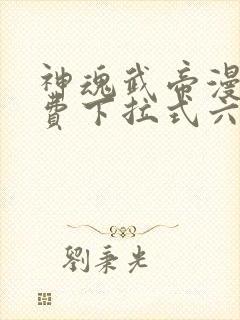 神魂武帝漫
费下拉式六
劉秉光